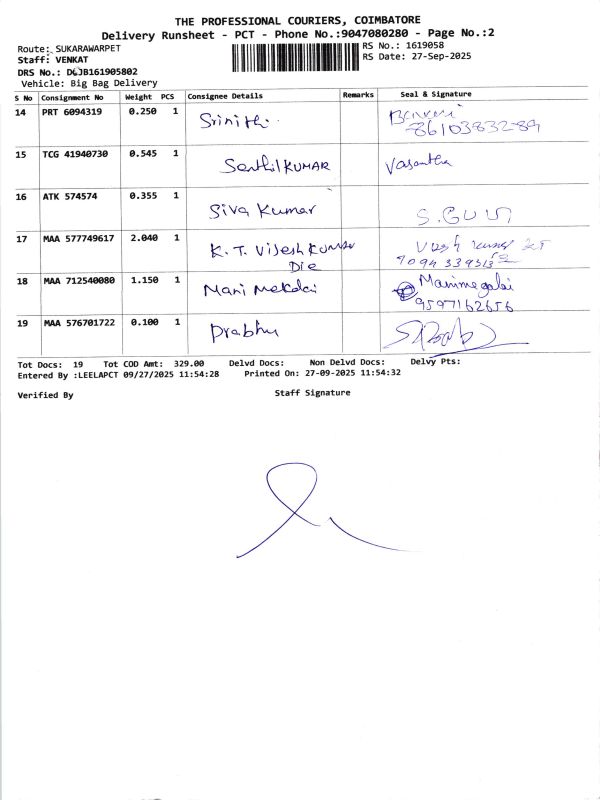 THE PROFESSIONAL COURIERS, COIMBATORE
Delivery Runsheet - PCT - Phone No.:9047080280 - Page No.:2
Route: SUKARAWARPET RS No.: 1619058
Staff: VENKAT RS Date: 27-Sep-2025
DRS No.: DGJB161905802
Vehicle: Big Bag Delivery
S No Consignment No Weight PCS Consignee Details Remarks Seal & Signature
14 PRT 6094319 0.250 1 Srinithi
8610383289
15 TCG 41940730 0.545 1 Senthil KUMAR Vasantha
16 ATK 574574 0.355 1 Siva Kumar S. GURU
17 MAA 577749617 2.040 1 K. T. Vijesh Kumar
Die
18 MAA 712540080 1.150 1 Mani Mekalai Manimegalai
9597162656
19 MAA 576701722 0.100 1 Prabhu
Tot Docs: 19 Tot COD Amt: 329.00 Delvd Docs: Non Delvd Docs: Delvy Pts:
Entered By :LEELAPCT 09/27/2025 11:54:28 Printed On: 27-09-2025 11:54:32
Verified By Staff Signature